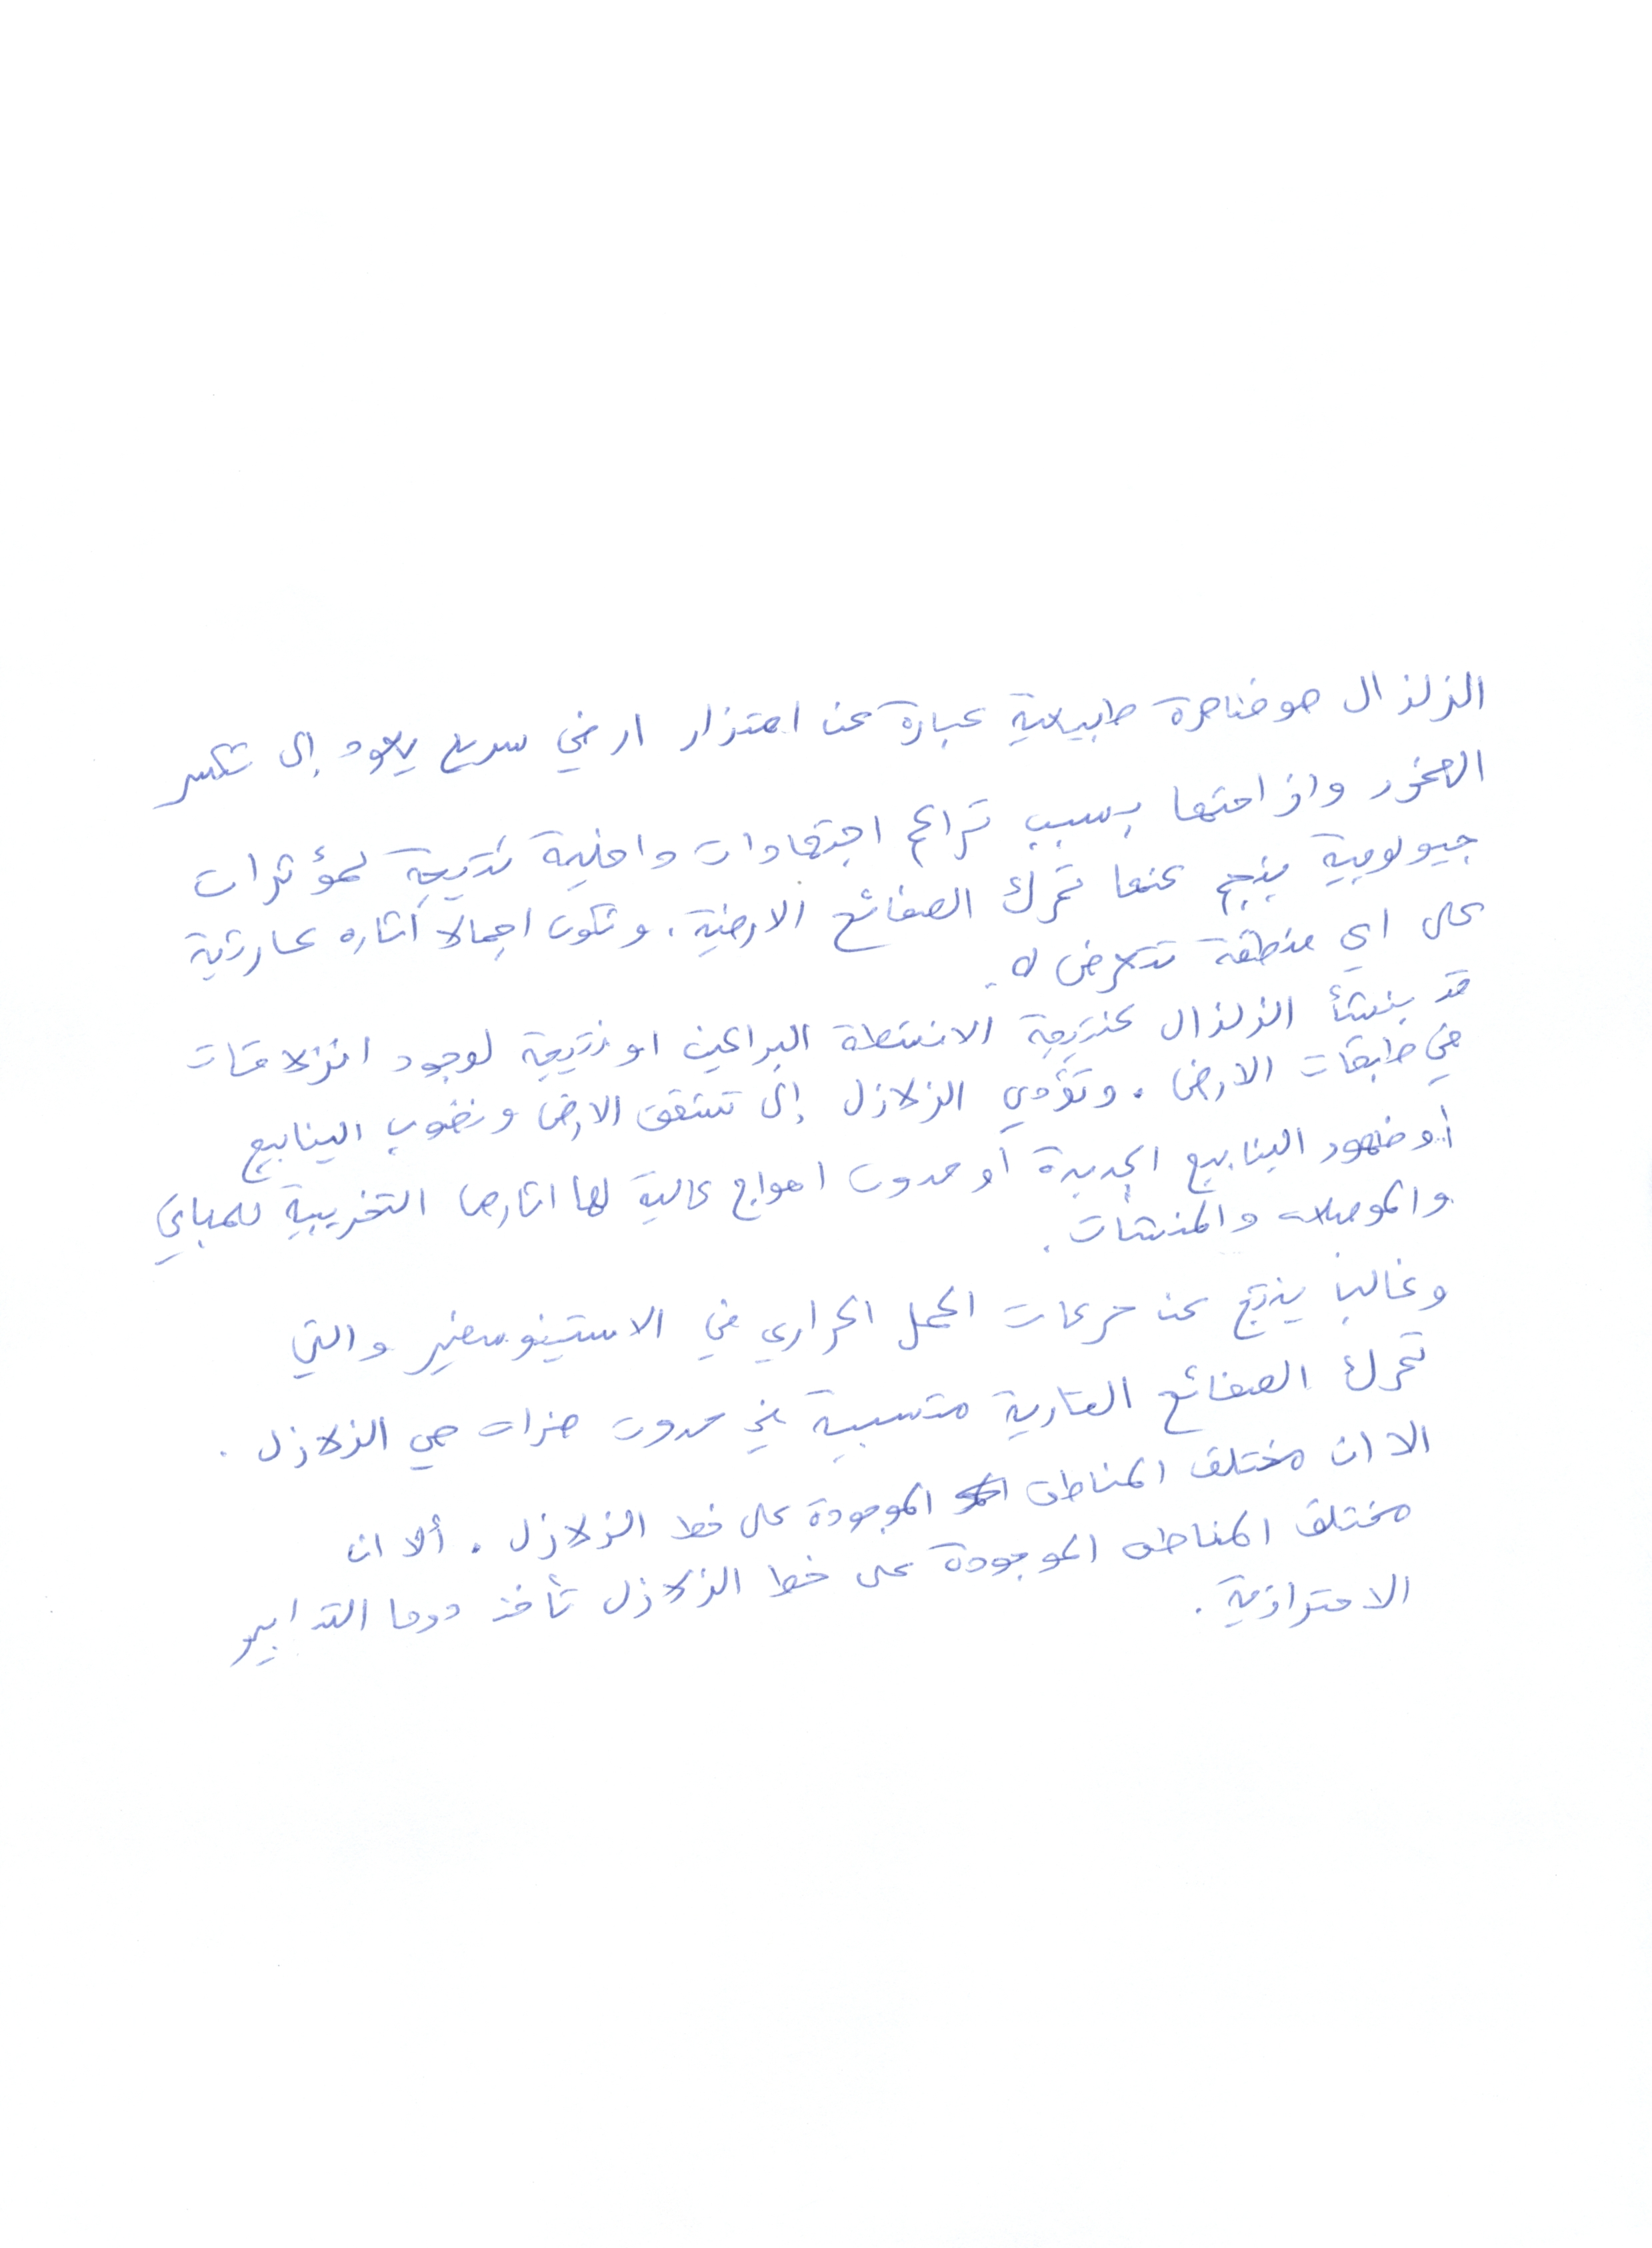 الزلزال هو ضاهرة طبيعية عبارة عن اهتزاز ارضي سريع يعود إلى تكسر
الصخور وازاحتها بسبب تراكم اجتهادات داخلية نتيجة لمؤثرات
جيولوجية ينجم عنها تحرك الصفائح الارضية. وتكون اجمالا أثاره كارثية
على اي منطقة تتعرض له.
قد ينشأ الزلزال كنتيجة الانشطة البراكين او نتيجة لوجود انزلاقات
في طابقات الارض. وتؤدي الزلازل إلى تشقق الارض ونضوب الينابيع
أو ضهور الينابيع الجديدة أو حدوث امواج عالية لها اثارها التخريبية للمباني
والموصلات والمنشأت.
وغالبا ينتج عن حركات الحمل الحراري في الاستينوسفير والتي
تحرك الصفائح القارية متسببة في حدوث هزات هي الزلازل.
الا ان مختلف المناطق الموجودة على خط الزلازل. ألا ان
مختلف المناطق الموجودة على خط الزلازل تأخذ دوما التدابير
الاحترازية.